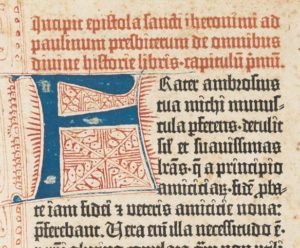 Incipit epistola sancti iheronimi ad
paulinum presbiterum de omnibus
divine historie libris. capitulū pͥmū.
Frater ambrosius
tua michi munus⸗
cula pferens. detulit
sil et suavissimas
lrās. q̄ a principio
amicicia⁊. fidē pba⸗
te iam fidei ⁊ veteris amicicie nova:
pferebant. Vera eni illa necessitudo ē.